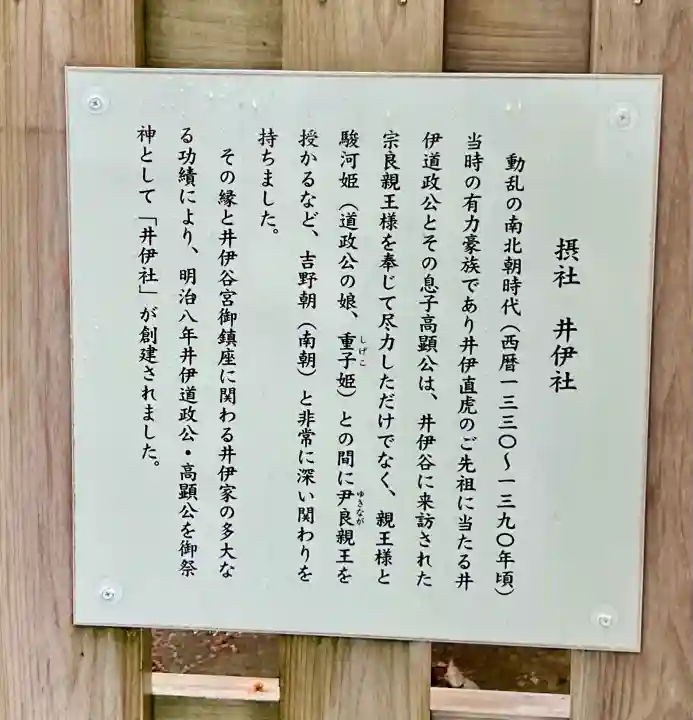 摂社　井伊社
動乱の南北朝時代（西暦一三三〇～一三九〇年頃）
当時の有力豪族であり井伊直虎のご先祖に当たる井
伊道政公とその息子高顕公は、井伊谷に来訪された
宗良親王様を奉じて尽力しただけでなく、親王様と
駿河姫（道政公の娘、重子姫）との間に尹良親王を
しげこ
ゆきなが
授かるなど、吉野朝（南朝）と非常に深い関わりを
持ちました。
その縁と井伊谷宮御鎮座に関わる井伊家の多大な
る功績により、明治八年井伊道政公・高顕公を御祭
神として「井伊社」が創建されました。